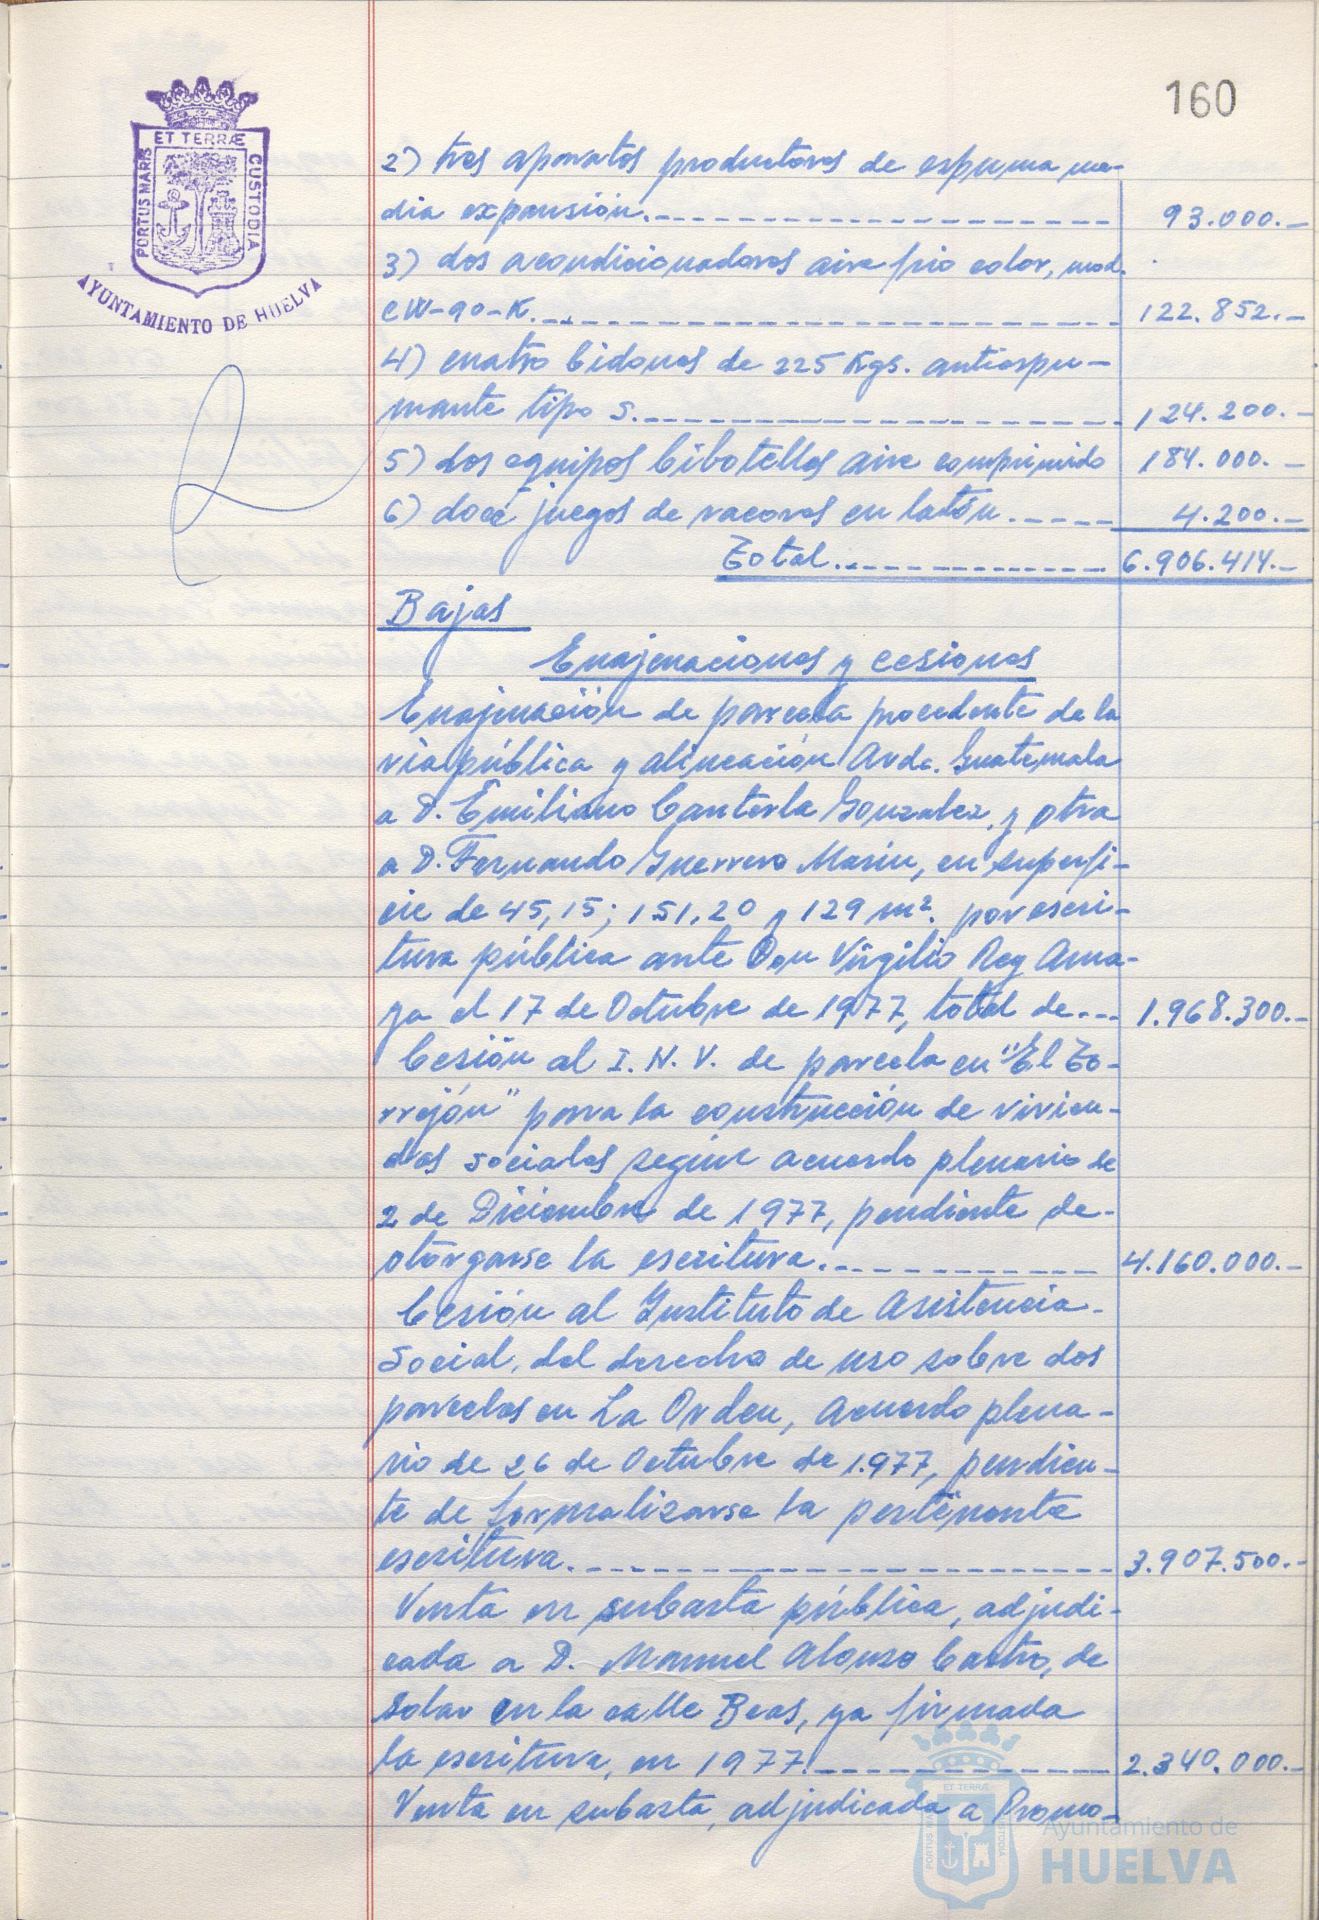 160
ET TERRÆ
PORTUS MARIS
CUSTODIA
AYUNTAMIENTO DE HUELVA
2) tres aparatos productores de espuma me-
dia expansión. 93.000.-
3) dos acondicionadores aire frio calor, mod.
CW-90-K. 122.852.-
4) cuatro bidones de 225 Kgs. antiespu-
mante tipo S. 124.200.-
5) dos equipos bibotellas aire comprimido 184.000.-
6) doce juegos de racores en latón. 4.200.-
Total. 6.906.414.-
Bajas
Enajenaciones y cesiones
Enajenación de parcela procedente de la
via pública y alineación Avda. Guatemala
a D. Emiliano Canterla Gonzalez, y otra
a D. Fernando Guerrero Marin, en superfi-
cie de 45,15; 151,20 y 129 m². por escri-
tura pública ante Don Virgilio Rey Ama-
ya el 17 de Octubre de 1977, total de 1.968.300.-
Cesión al I. N. V. de parcela en "El To-
rrejón" para la construcción de vivien-
das sociales según acuerdo plenario de
2 de Diciembre de 1977, pendiente de-
otorgarse la escritura. 4.160.000.-
Cesión al Instituto de Asistencia-
Social, del derecho de uso sobre dos
parcelas en La Orden, Acuerdo plena-
rio de 26 de Octubre de 1.977, pendien-
te de formalizarse la pertinente
escritura. 3.907.500.-
Venta en subasta pública, adjudi-
cada a D. Manuel Alonso Castro, de
solar en la calle Beas, ya firmada
la escritura, en 1977. 2.340.000.-
Venta en subasta, adjudicada a Promo-
ET TERRÆ
PORTUS MARIS
CUSTODIA
Ayuntamiento de
HUELVA